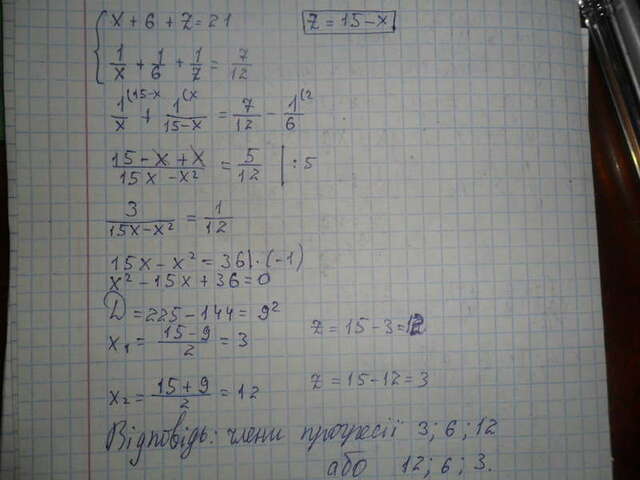 x + 6 + z = 21 z = 15 - x
1/x + 1/6 + 1/z = 7/12
1/x (15-x + 1/(15-x) (x = 7/12 - 1/6 (2
(15 - x + x)/(15x - x²) = 5/12 | : 5
3/(15x - x²) = 1/12
15x - x² = 36 | · (-1)
x² - 15x + 36 = 0
D = 225 - 144 = 9²
x₁ = (15 - 9)/2 = 3 z = 15 - 3 = 12
x₂ = (15 + 9)/2 = 12 z = 15 - 12 = 3
Відповідь: члени прогресії 3; 6; 12
або 12; 6; 3.